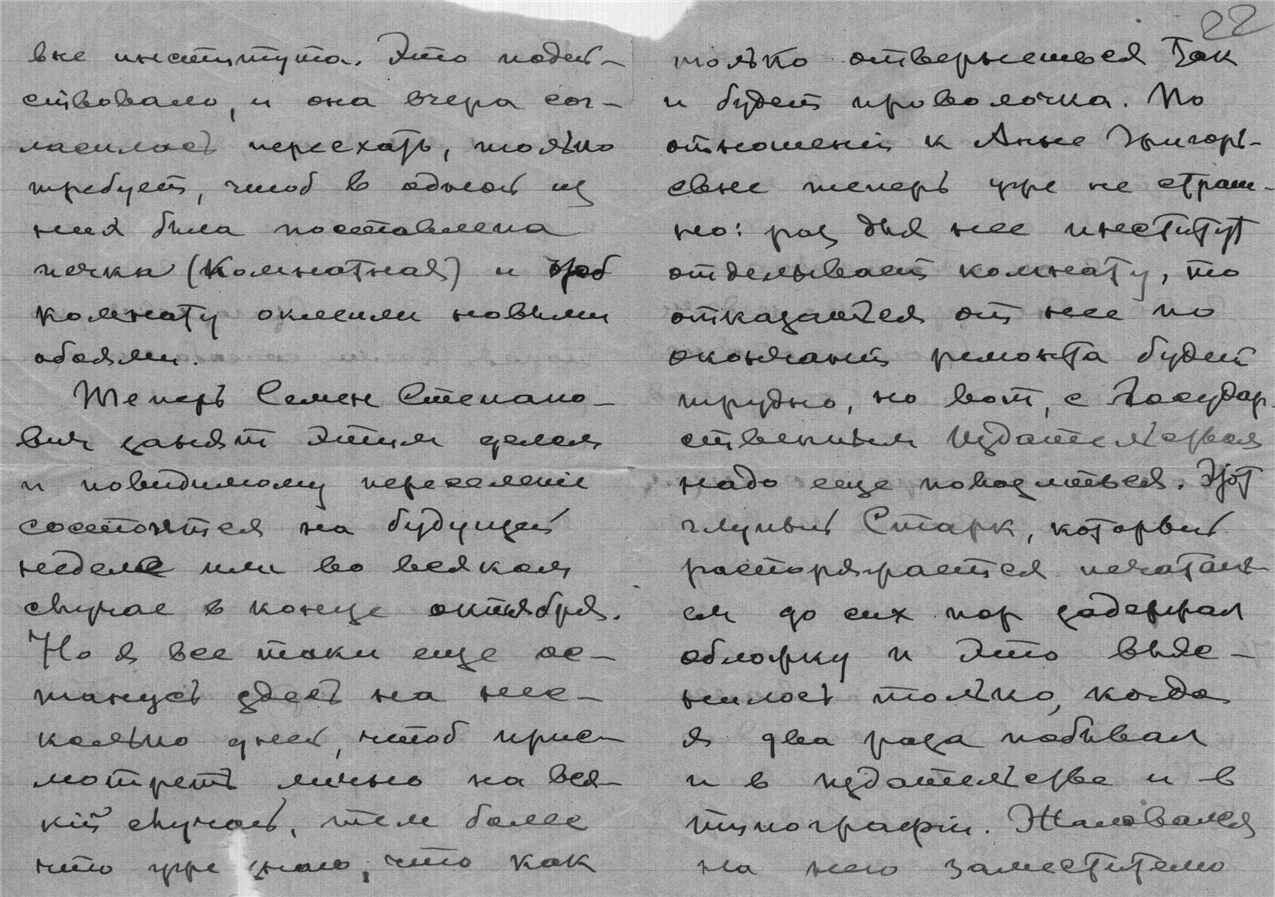 вне института. Это подей-
ствовало, и она вчера сог-
ласилась переехать, только
требует, чтоб в одной из
них была поставлена
печка (комнатная) и чтоб
комнату оклеили новыми
обоями.
Теперь Семен Степано-
вич занят этим делом
и повидимому переселенiе
состоится на будущей
неделе или во всяком
случае в конце октября.
Но я все таки еще ос-
танусь здесь на нес-
колько дней, чтоб прис-
мотреть лично на вся-
кiй случай, тем более
что уже знаю, что как
22
только отвернешься так
и будет проволочка. По
отношенiю к Анне Григорь-
евне теперь уже не страш-
но: раз для нее институт
отделывает комнату, то
отказаться от нее по
окончанiи ремонта будет
трудно, но вот, с Государ-
ственным Издательством
надо еще повозиться. Этот
глупый Старк, который
распоряжается печатань-
ем до сих пор задержал
обложку и это выяс-
нилось только, когда
я два раза побывал
и в издательстве и в
типографiи. Жаловался
на него заместителю